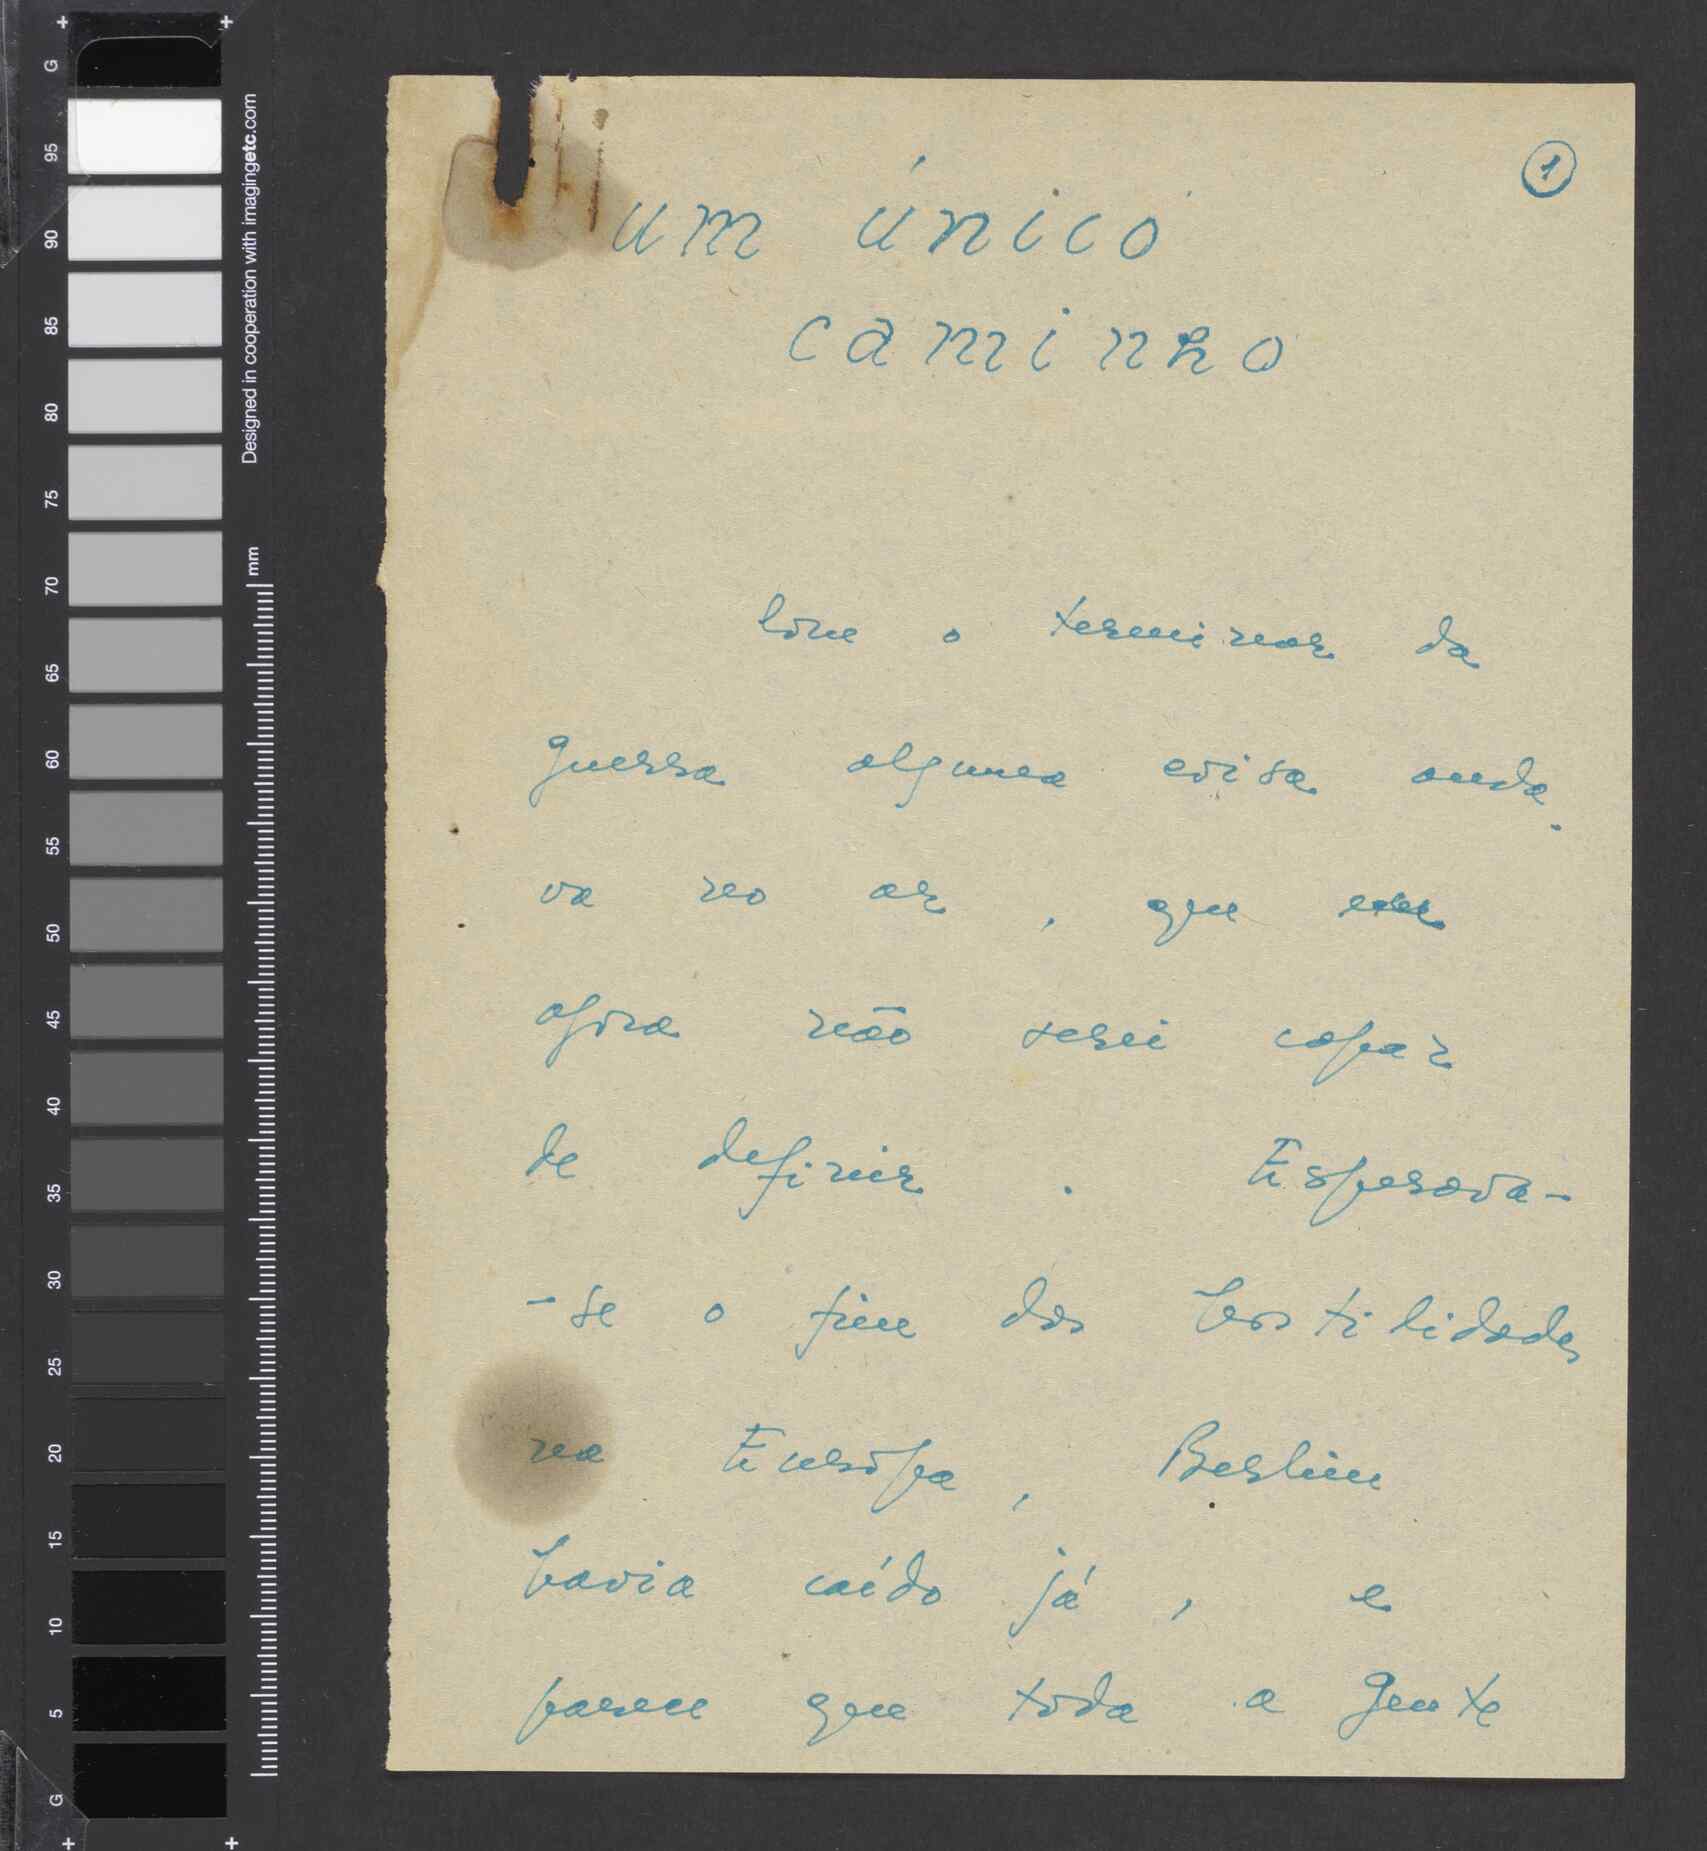 1
um único
caminho
Com o terminar da
guerra alguma coisa anda-
va no ar, que
agora não serei capaz
de definir. Esperava-
-se o fim das hostilidades
na Europa, Berlim
havia caído já, e
parece que toda a gente
G
95
90
85
80
75
70
65
60
55
50
45
40
35
30
25
20
15
10
5
G
Designed in cooperation with imagingetc.com
mm